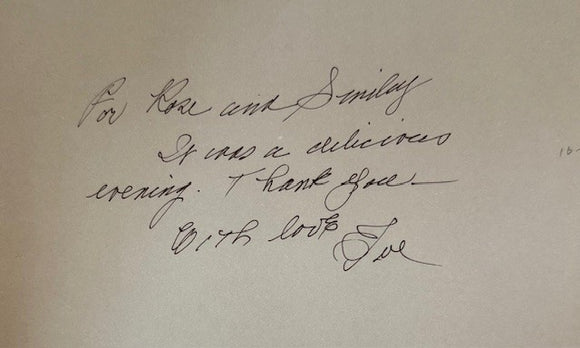 For Rose and Smiley
It was a delicious
evening. Thank you—
With love Joe